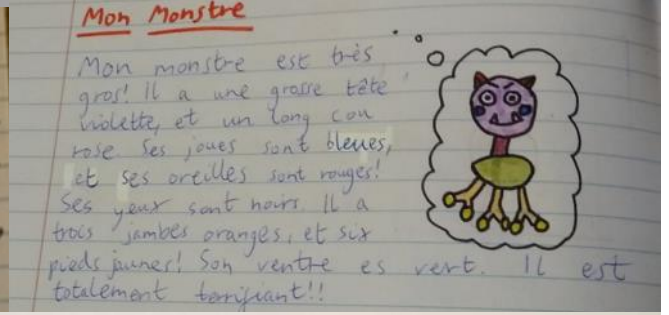 Mon Monstre
Mon monstre est très
gros! Il a une grosse tête
violette, et un long cou
rose. Ses joues sont bleues,
et ses oreilles sont rouges!
Ses yeux sont noirs. Il a
trois jambes oranges, et six
pieds jaunes! Son ventre es vert. Il est
totalement terrifiant!!